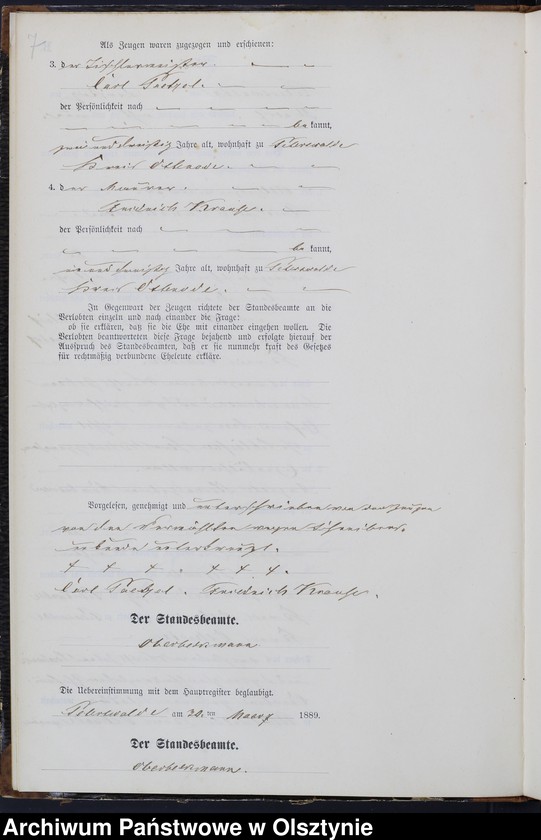 7
Als Zeugen waren zugezogen und erschienen:
3. der Tischlermeister
Carl Paetzel.
der Persönlichkeit nach
be kannt,
zwei und dreißig Jahre alt, wohnhaft zu
Kreis Osterode.
4. der Maurer.
Friedrich Krause.
der Persönlichkeit nach
be kannt,
und dreißig Jahre alt, wohnhaft zu
Kreis Osterode.
In Gegenwart der Zeugen richtete der Standesbeamte an die
Verlobten einzeln und nach einander die Frage:
ob sie erklären, daß sie die Ehe mit einander eingehen wollen. Die
Verlobten beantworteten diese Frage bejahend und erfolgte hierauf der
Ausspruch des Standesbeamten, daß er sie nunmehr kraft des Gesetzes
für rechtmäßig verbundene Eheleute erkläre.
Vorgelesen, genehmigt und unterschrieben von den Zeugen
von den Vermählten wegen
unterkreuzt.
+ + + . + + + .
Carl Paetzel . Friedrich Krause .
Der Standesbeamte.
Die Uebereinstimmung mit dem Hauptregister beglaubigt.
am 20. ten Maerz 1889.
Der Standesbeamte.
Archiwum Państwowe w Olsztynie